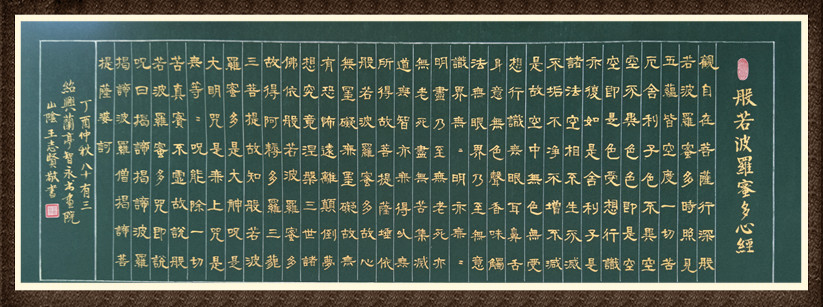 般若波羅蜜多心經
觀自在菩薩行深般
若波羅蜜多時照見
五蘊皆空度一切苦
厄舍利子色不異空
空不異色色即是空
空即是色受想行識
亦復如是舍利子是
諸法空相不生不滅
不垢不淨不增不減
是故空中無色無受
想行識無眼耳鼻舌
身意無色聲香味觸
法無眼界乃至無意
識界無〻明亦無〻
明盡乃至無老死亦
無老死盡無苦集滅
道無智亦無得以無
所得故菩提薩埵依
般若波羅蜜多故心
無罣礙無罣礙故無
有恐怖遠離顛倒夢
想究竟涅槃三世諸
佛依般若波羅蜜多
故得阿耨多羅三藐
三菩提故知般若波
羅蜜多是大神咒是
大明咒是無上咒是
無等〻咒能除一切
苦真實不虛故說般
若波羅蜜多咒即說
呪曰揭諦揭諦波羅
揭諦波羅僧揭諦菩
提薩婆訶
丁酉仲秋八十有三
紹興蘭亭智永書畫院
山陰王志賢敬書